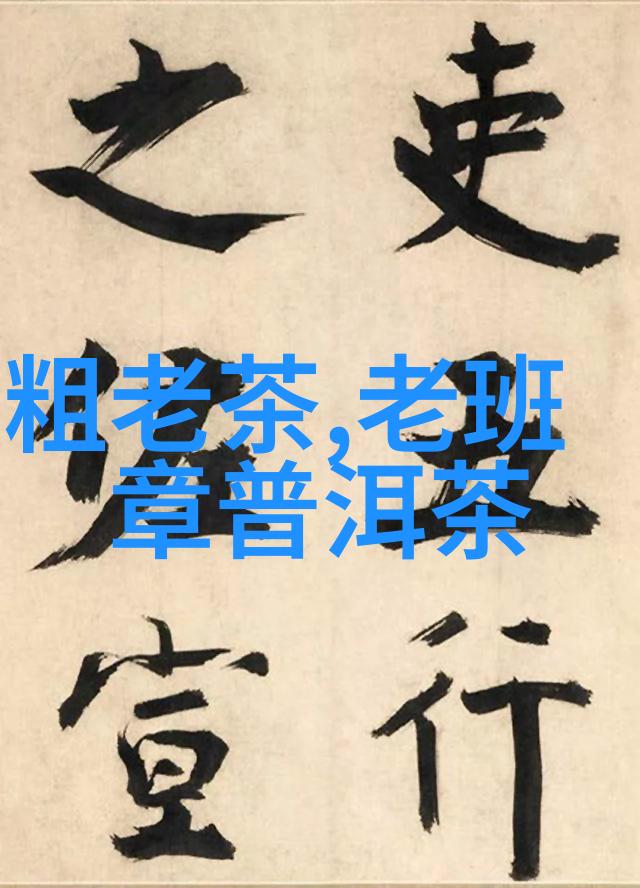 粗老茶,老班
章普洱茶
吏行
之宣